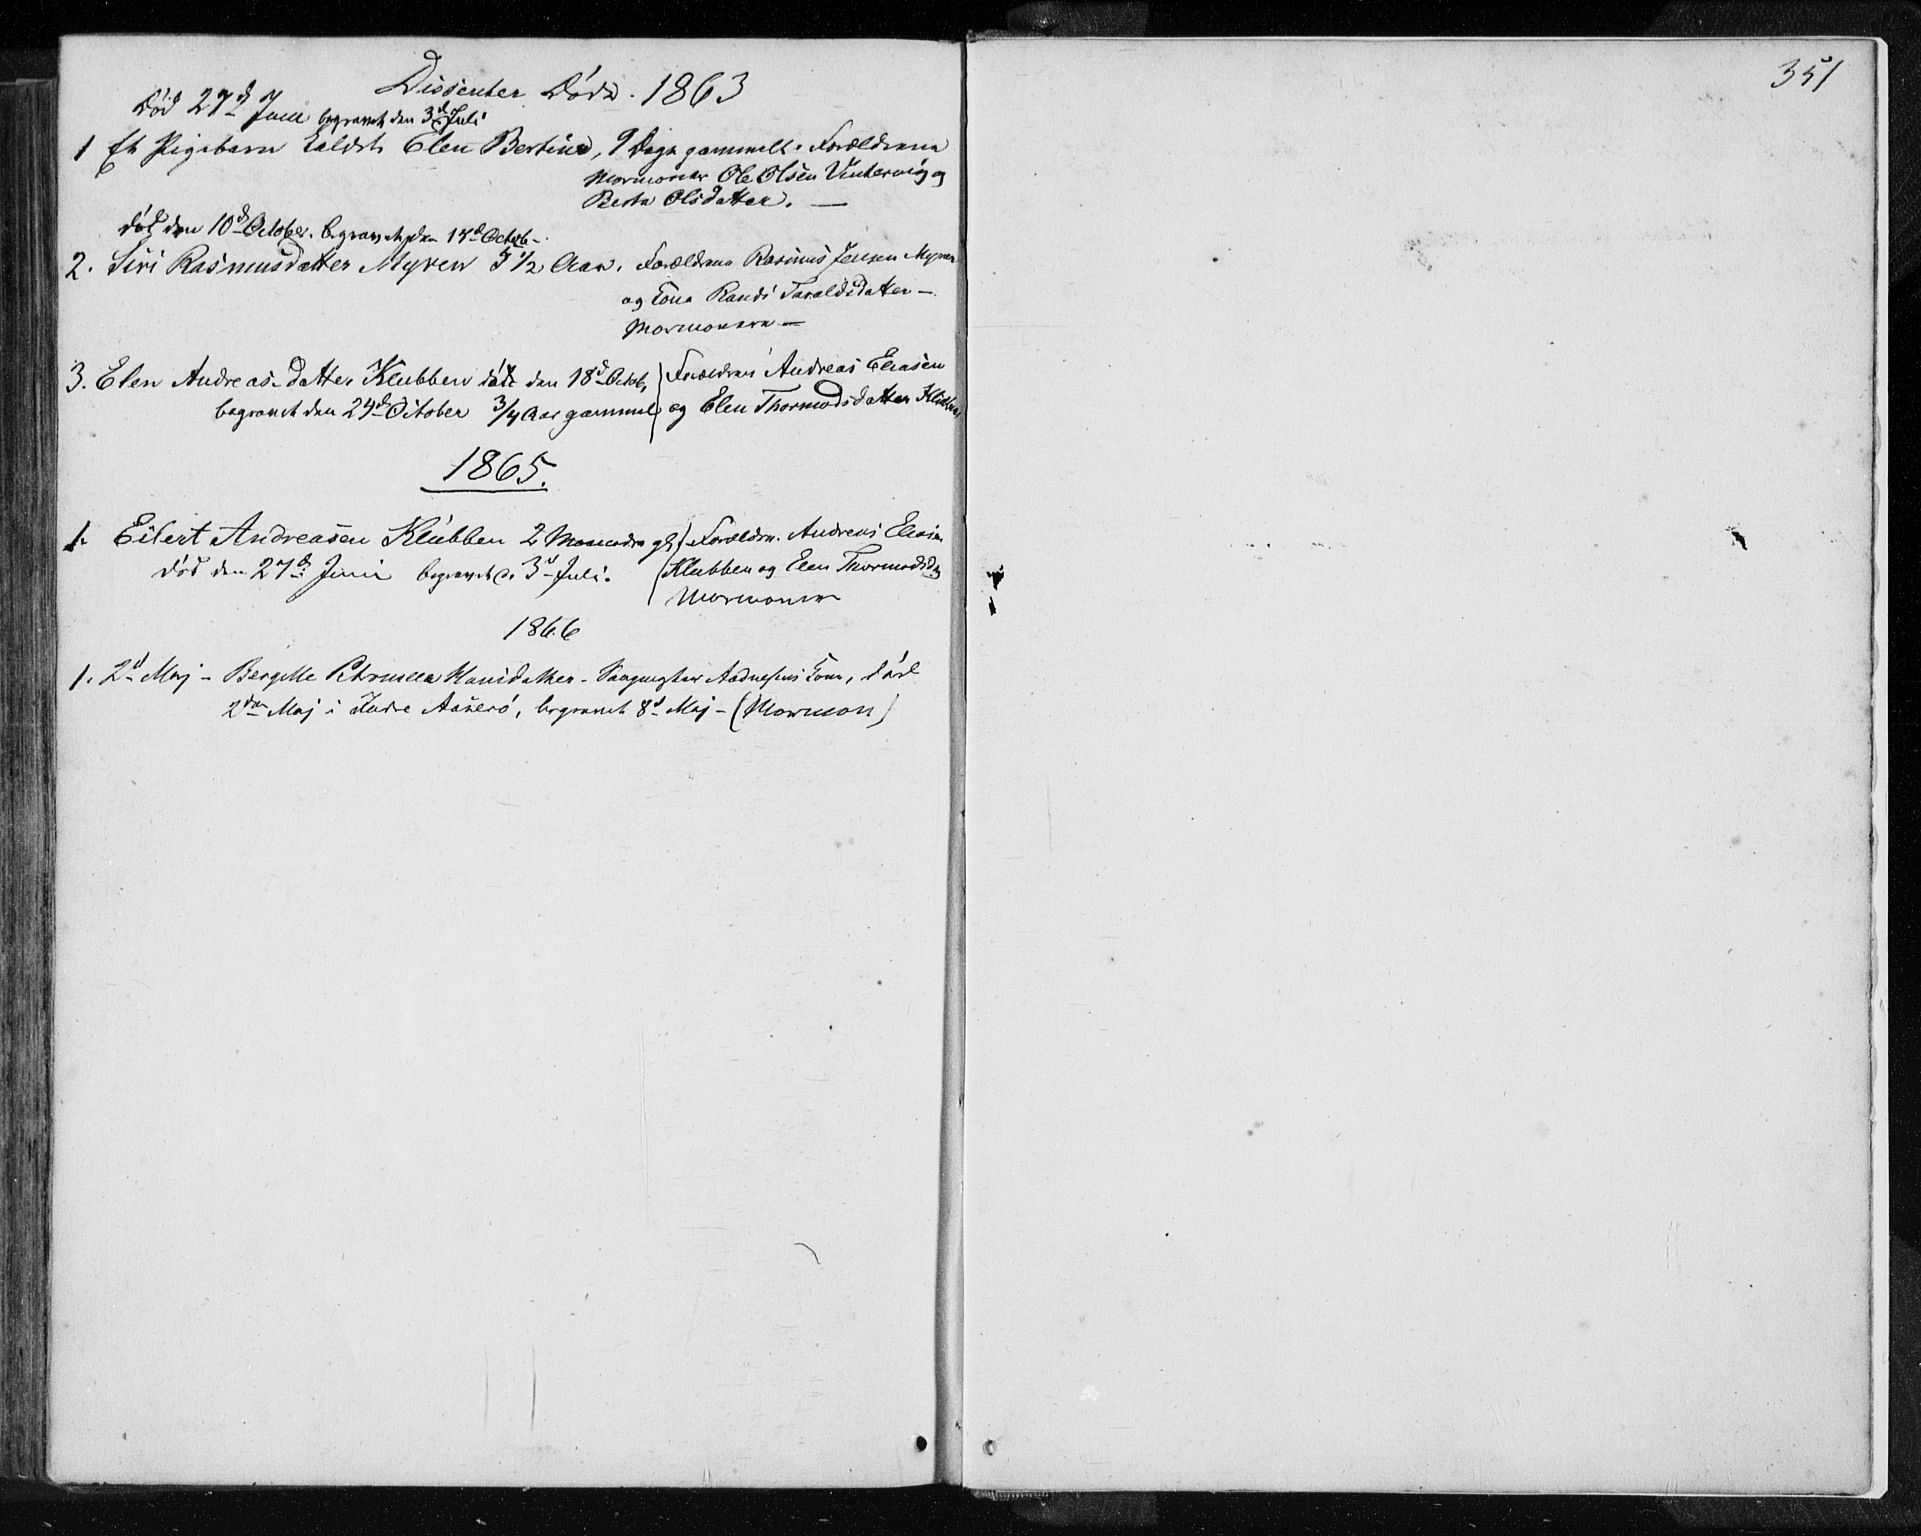 Dissenter Døde. 1863
Død 27d Juni begravet den 3d Juli
1 Et Pigebarn kaldet Elen Bertine, 9 Dage gammelt. Forældrene
Mormoner Ole Olsen Vintervig og
Berta Olsdatter. —
død den 10d October. begravet den 15d Octob –
2. Siri Rasmusdatter Myren 5 1/2 Aar. Forældrene Rasmus Jensen Myren
og Kone Randi Taraldsdatter —
Mormonere —
3. Elen Andreas-datter Klubben død den 18d Octob, Forældrene Andreas Eliasen
begravet den 24d October 3/4 Aar gammel og Elen Thormodsdatter Klubben
1865.
1. Eilert Andreasen Klubben 2 Maaneder gl. Forældre. Andreas Eliasen
død den 27d Juni begravet d. 3d Juli. Klubben og Elen Thormodsd
Mormoner
1866
1. 2d Maj – Bergitte Petronella Hansdatter – Kone, død
2den Maj i Indre Aaserø, begravet 8d Maj – (Mormon)
351